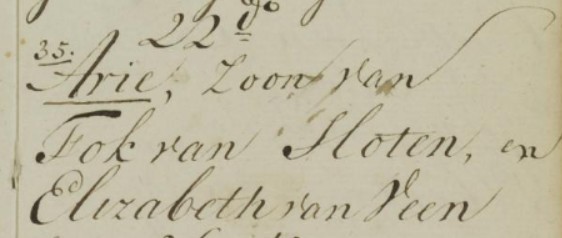 22 do
35.
Arie, Zoon van
Fok van Sloten, en
Elizabeth van Veen